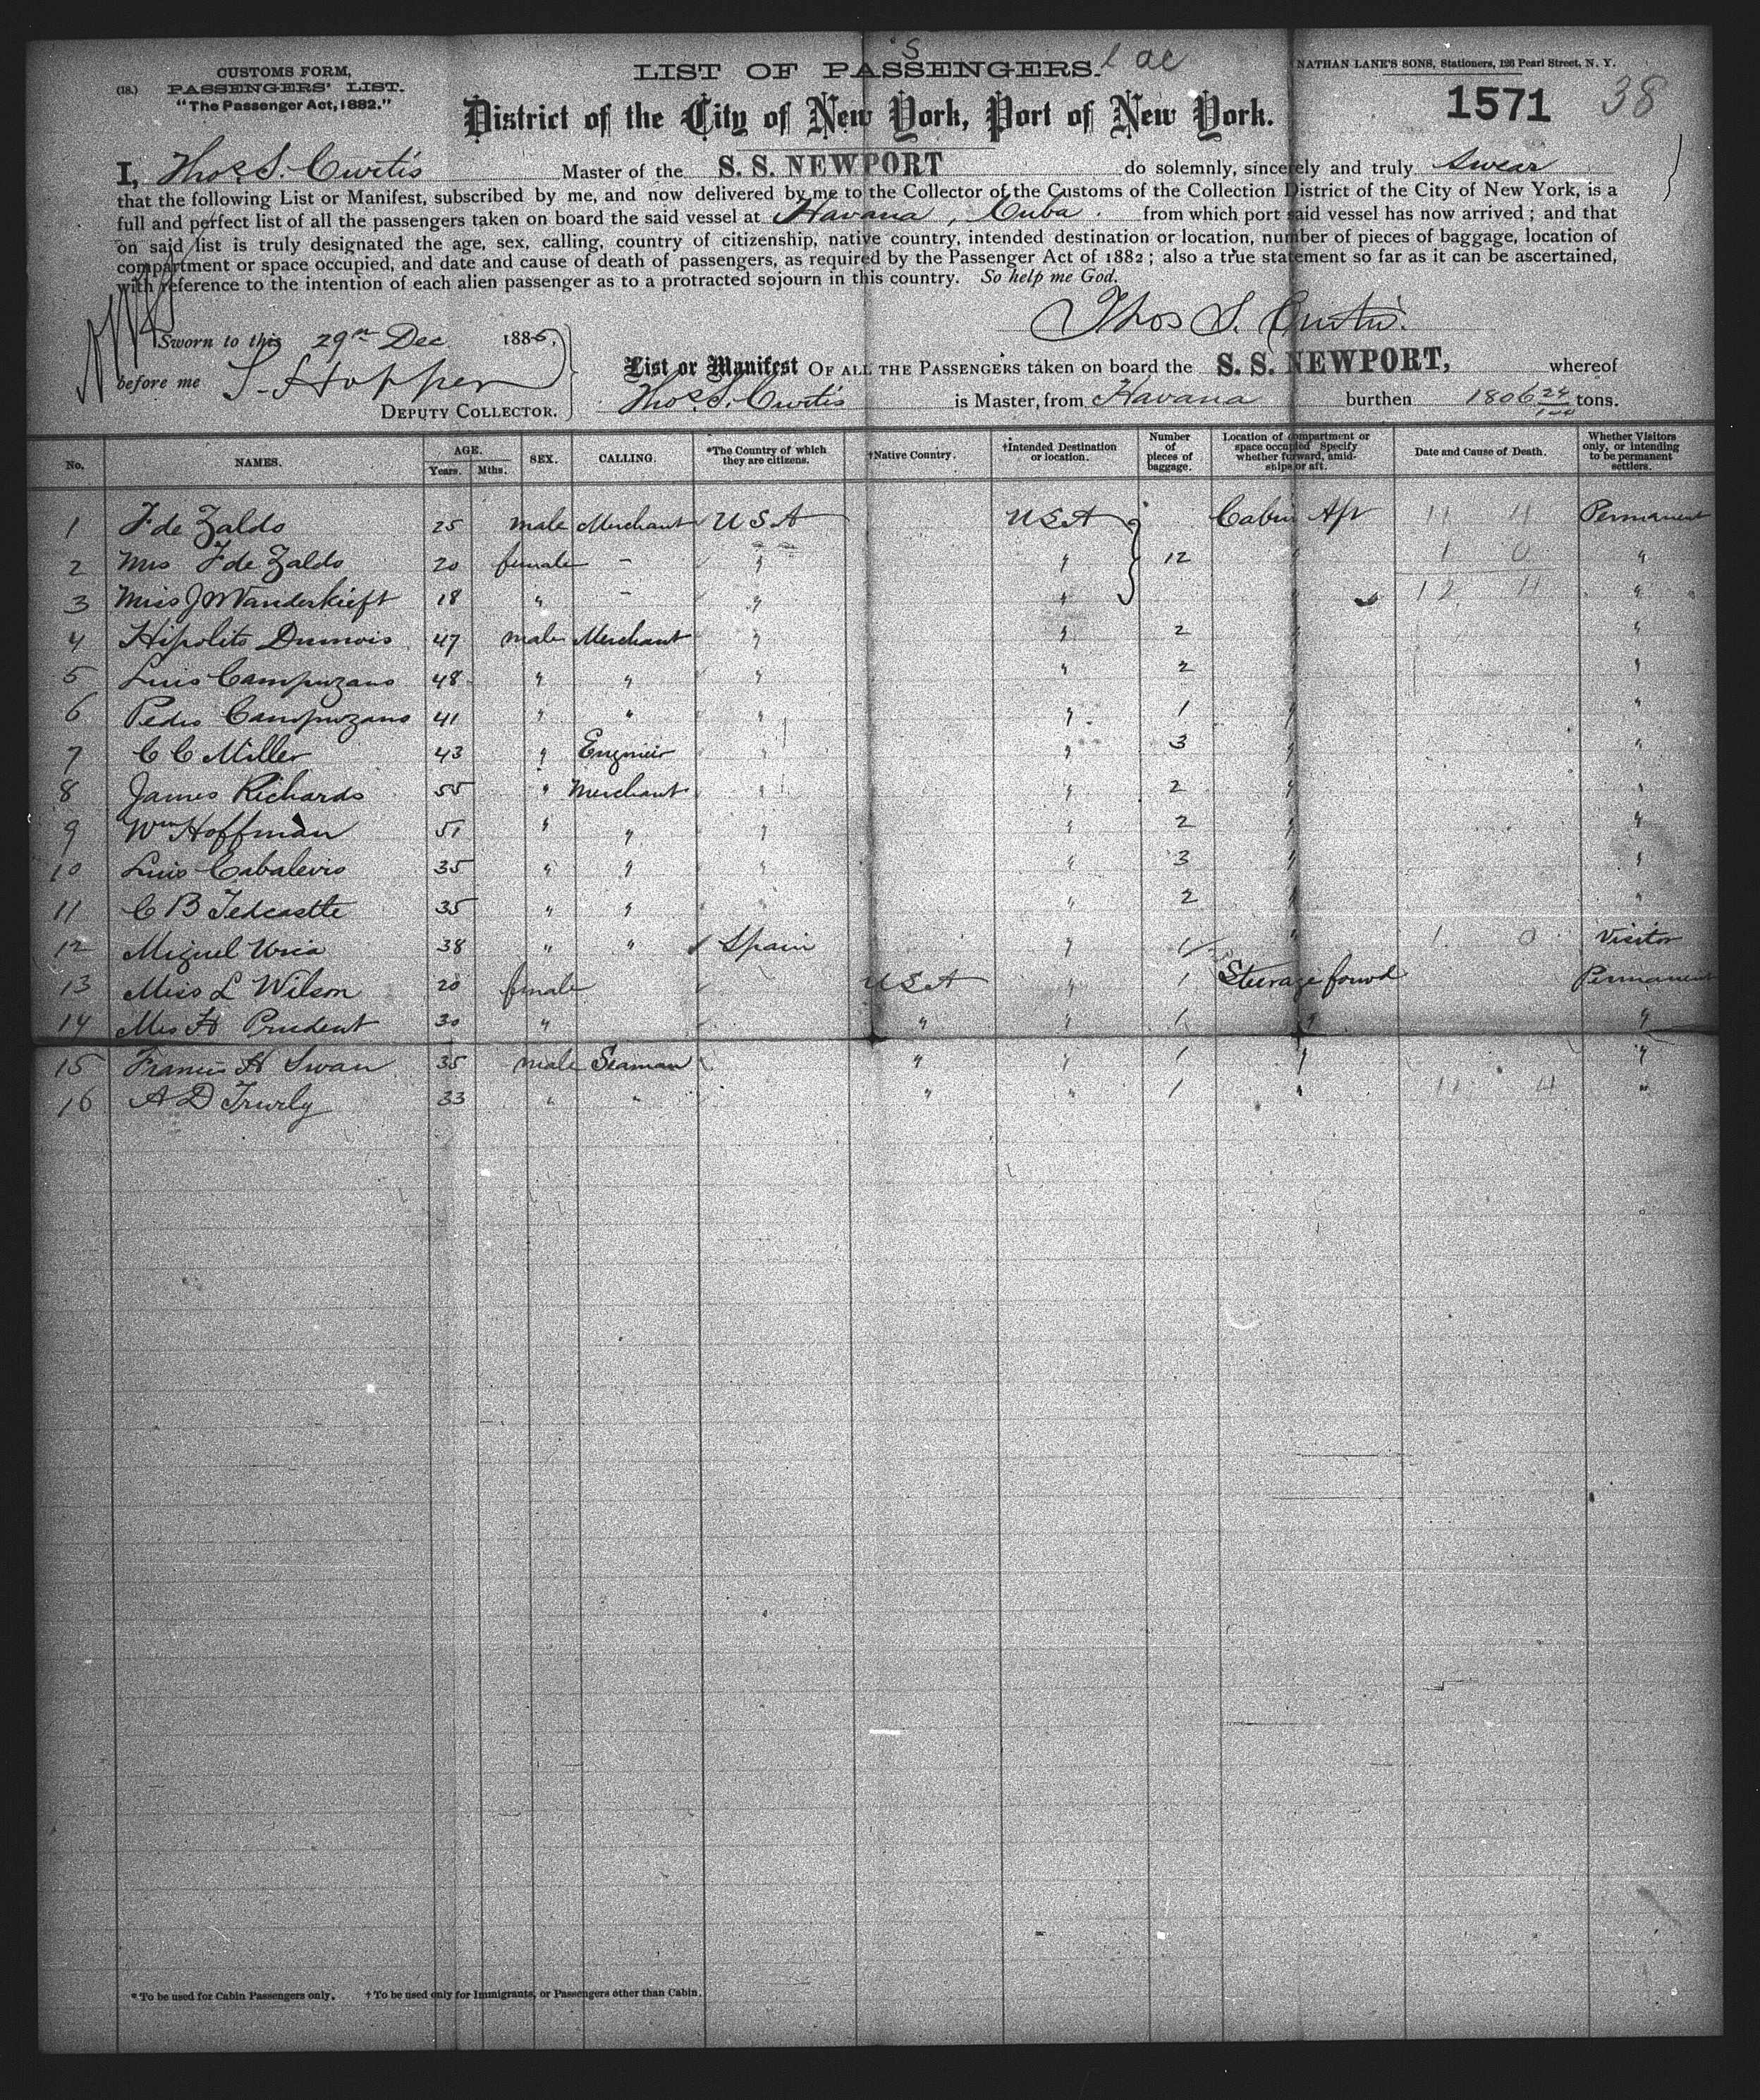 CUSTOMS FORM,
(18.) PASSENGERS' LIST.
"The Passenger Act, 1882."
LIST OF PASSENGERS.
NATHAN LANE'S SONS, Stationers, 126 Pearl Street, N. Y.
District of the City of New York, Port of New York.
1571 38
I, Thos. S. Curtis Master of the S. S. NEWPORT do solemnly, sincerely and truly swear
that the following List or Manifest, subscribed by me, and now delivered by me to the Collector of the Customs of the Collection District of the City of New York, is a
full and perfect list of all the passengers taken on board the said vessel at Havana, Cuba. from which port said vessel has now arrived; and that
on said list is truly designated the age, sex, calling, country of citizenship, native country, intended destination or location, number of pieces of baggage, location of
compartment or space occupied, and date and cause of death of passengers, as required by the Passenger Act of 1882; also a true statement so far as it can be ascertained,
with reference to the intention of each alien passenger as to a protracted sojourn in this country. So help me God.
Thos S. Curtis.
Sworn to this 29th Dec 1885,
before me S. Hopper
DEPUTY COLLECTOR.
List or Manifest OF ALL THE PASSENGERS taken on board the S. S. NEWPORT, whereof
Thos. S. Curtis is Master, from Havana burthen 1806 24/100 tons.
No. NAMES. AGE. Years. Mths. SEX. CALLING. *The Country of which they are citizens. †Native Country. †Intended Destination or location. Number of pieces of baggage. Location of compartment or space occupied. Specify whether forward, amidships or aft. Date and Cause of Death. Whether Visitors only, or intending to be permanent settlers.
1 F de Zaldo 25 male Merchant USA USA Cabin Aft 11 4 Permanent
2 Mrs F de Zaldo 20 female - " " 12 " 1 0 "
3 Miss J M Vanderkieft 18 " - " " " 12 4 "
4 Hipolito Dumois 47 male Merchant " " 2 " "
5 Luis Campuzano 48 " " " " 2 " "
6 Pedro Campuzano 41 " " " " 1 " "
7 C C Miller 43 " Engineir " " 3 " "
8 James Richards 55 " Merchant " " 2 " "
9 Wm Hoffman 51 " " " " 2 " "
10 Luis Cabalevis 35 " " " " 3 " "
11 C B Tedcastle 35 " " " " 2 " "
12 Miguel Uria 38 " " Spain " 1 " 1 0 Visitor
13 Miss L Wilson 20 female USA " 1 Steerage forwd Permanent
14 Mrs H Prudent 30 " " " 1 " "
15 Francis H Swan 35 male Seaman " " 1 " "
16 A D 33 " " " " 1 " 11 4 "
* To be used for Cabin Passengers only. † To be used only for Immigrants, or Passengers other than Cabin.